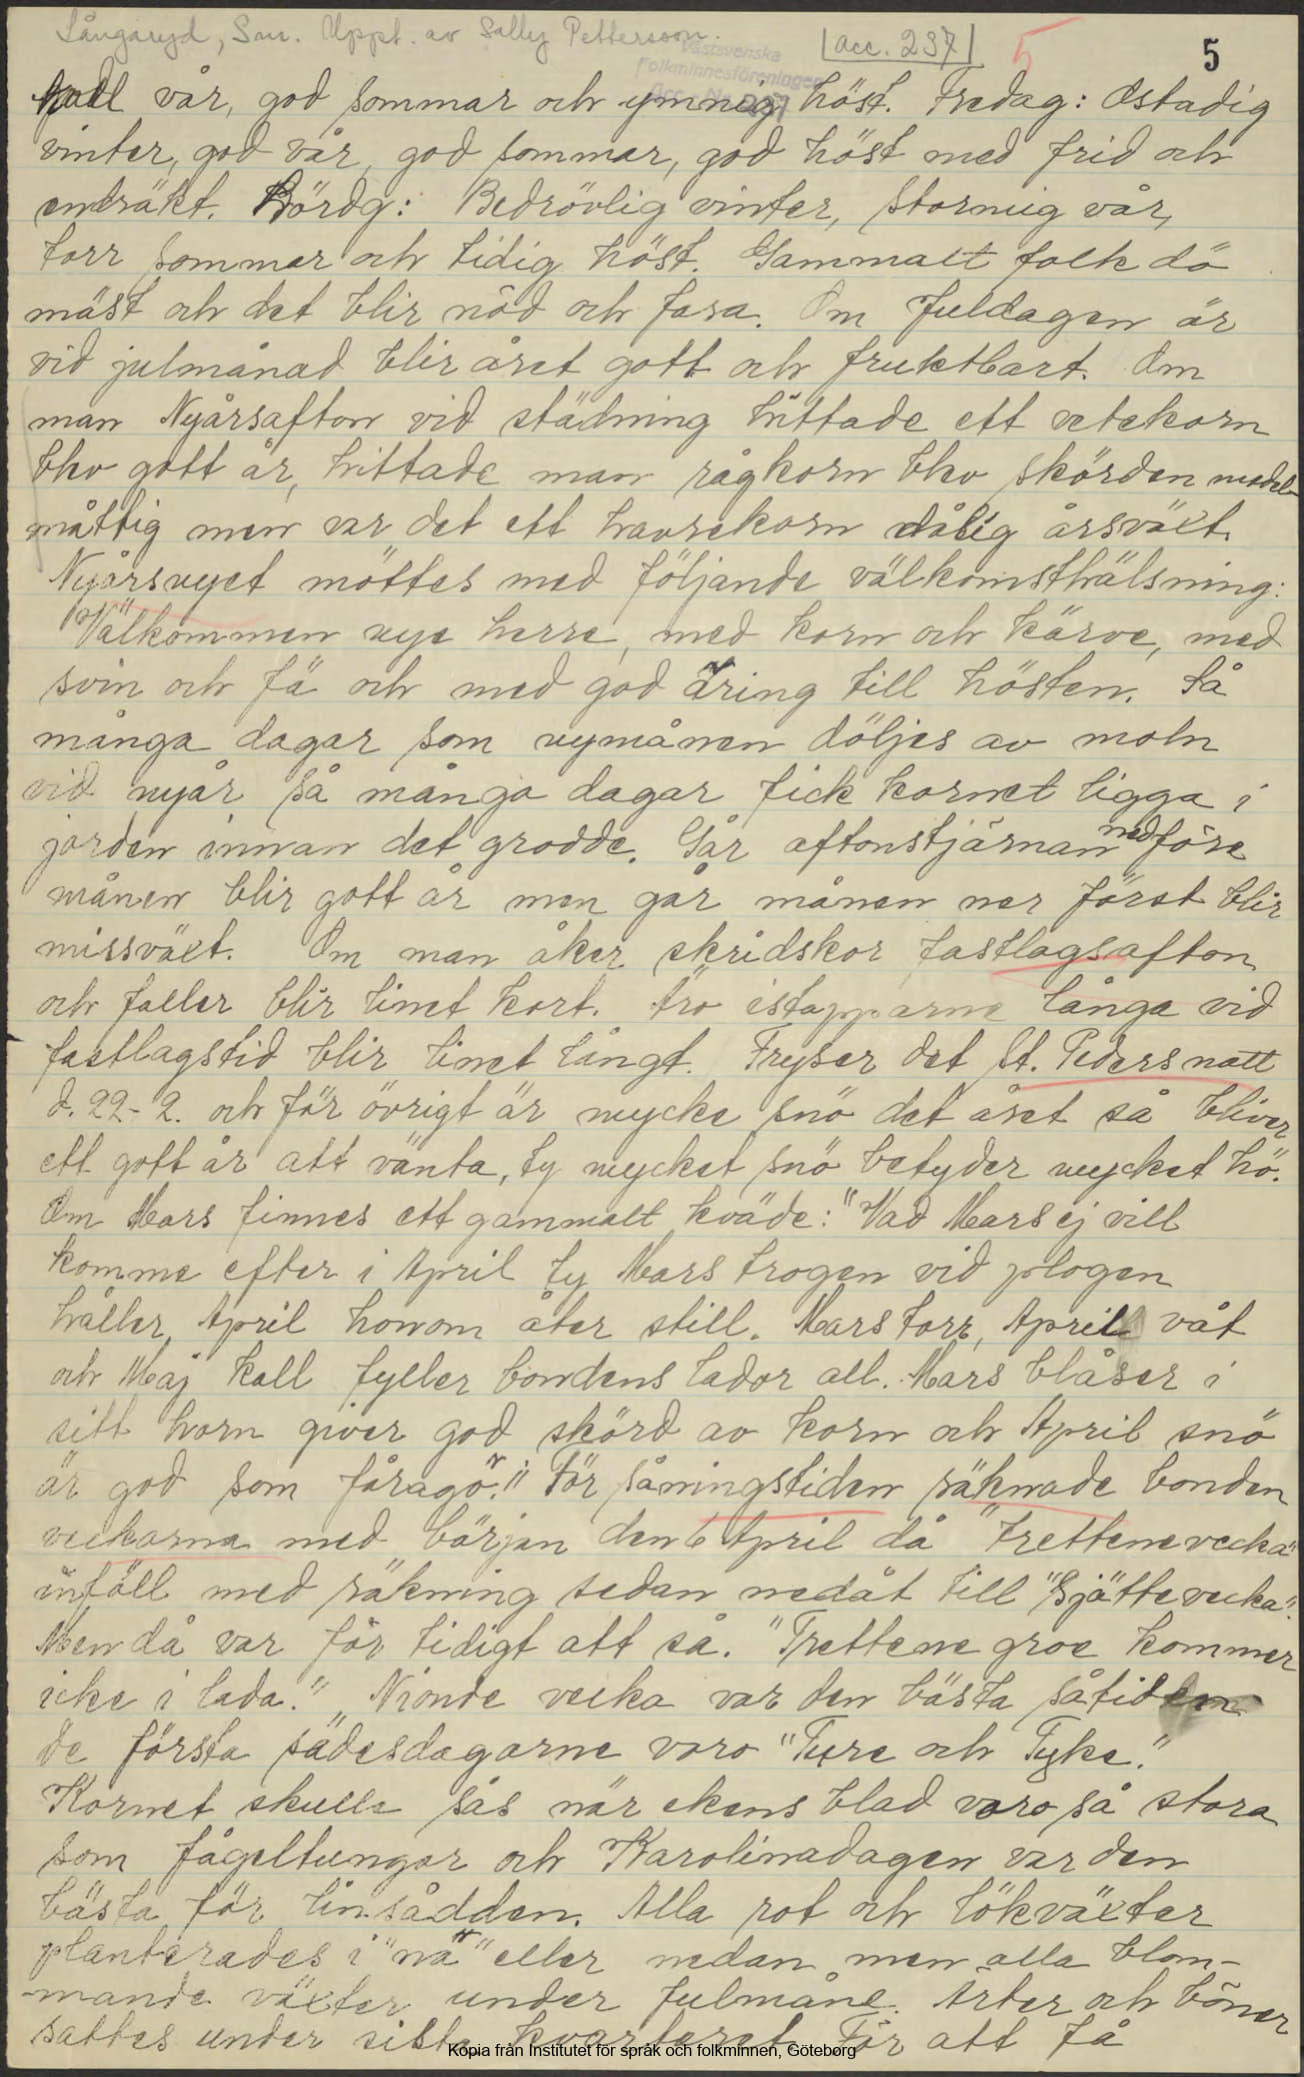 Långaryd, Sm. Uppt. av Sally Pettersson.
acc. 237
5
5
Västsvenska
Folkminnesföreningen
Acc. Nr 237
kall vår, god sommar och ymnig höst. Fredag: Ostadig
vinter, god vår, god sommar, god höst med frid och
endräkt. Lördg: Bedrövlig vinter, stormig vår,
torr sommar och tidig höst. Gammalt folk dö
mäst och det blir nöd och fara. Om Juldagen är
vid julmånad blir året gott och fruktbart. Om
man Nyårsafton vid städning hittade ett vetekorn
blev gott år, hittade man rågkorn blev skörden medel-
måttig men var det ett havrekorn dålig årsväxt.
Nyårsnyet möttes med följande välkomsthälsning:
"Välkommen nye herre, med korn och kärve, med
svin och fä och med god äring till hösten. Så
många dagar som nymånen döljes av moln
vid nyår så många dagar fick kornet ligga i
jorden innan det grodde. Går aftonstjärnan ned före
månen blir gott år men går månen ner först blir
missväxt. Om man åker skridskor fastlagsafton
och faller blir linet kort. Äro istapparne långa vid
fastlagstid blir linet långt. Fryser det St. Peders natt
d. 22-2. och för övrigt är mycke snö det året så bliver
ett gott år att vänta, ty mycket snö betyder mycket hö.
Om Mars finnes ett gammalt kväde: "Vad Mars ej vill
komme efter i April ty Mars trogen vid plogen
håller, April honom åter still. Mars torr, April våt
och Maj kall fyller bondens lador all. Mars blåser i
sitt horn giver god skörd av korn och April snö
är god som fåragö." För såningstiden räknade bonden
veckorna med början den 6 April då "trettene vecka"
inföll med räkning sedan nedåt till "Sjätte vecka".
Men då var för tidigt att så. "Trettene groe kommer
icke i lada." Nionde vecka var den bästa såtiden
de första sädesdagarne voro "Ture och Tyke."
Kornet skulle sås när ekens blad voro så stora
som fågeltungor och Karolinadagen var den
bästa för linsådden. Alla rot och lökväxter
planterades i "nä" eller nedan men alla blom-
mande växter under fulmåne. Ärter och bönor
sattes under sista kvarteret. För att få
Kopia från Institutet för språk och folkminnen, Göteborg